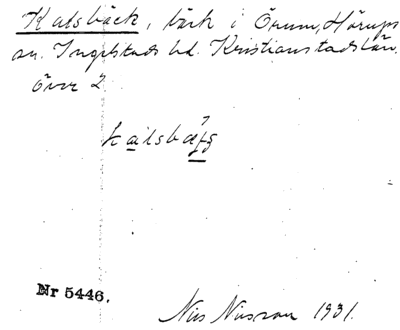 Kalsbäck, bäck i Örum, Hörups
sn. Ingelstads hd. Kristianstads län.
över 2
Nr 5446.
Nils Nilsson 1931.